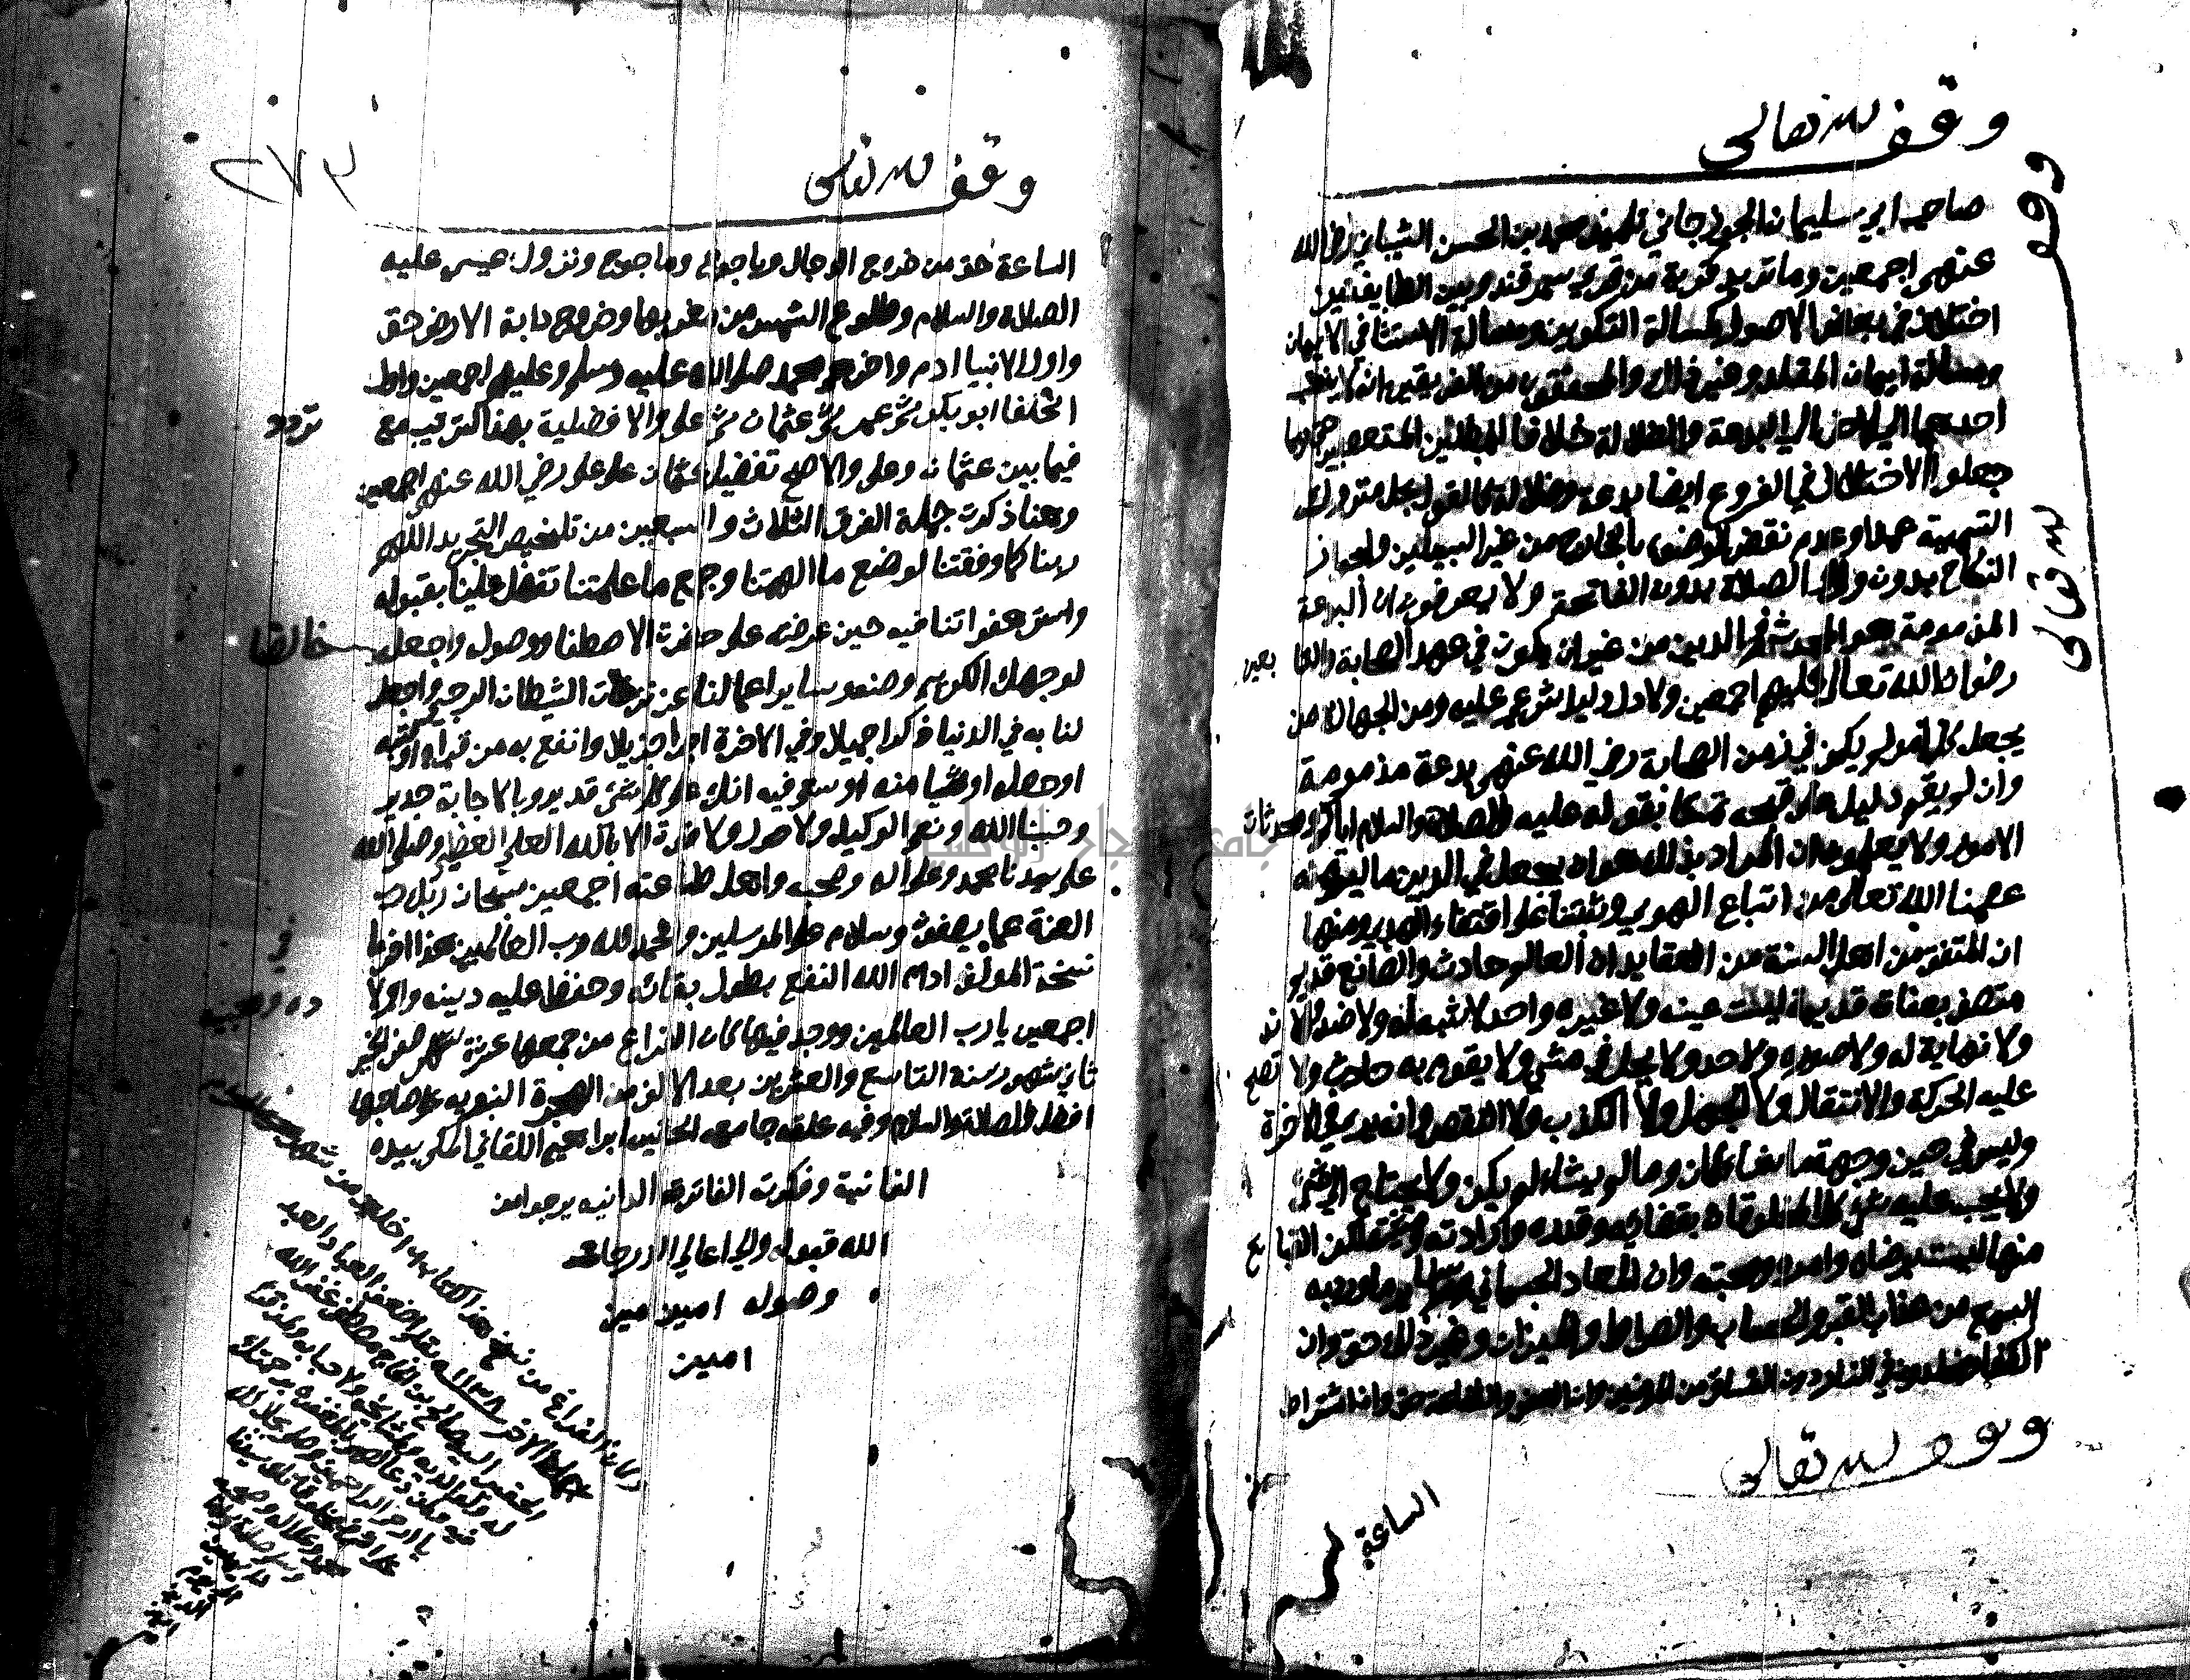 وقف لله تعالى
صاحب ابي سليمان الجوزجاني تلميذ محمد بن الحسن الشيباني رضي الله
عنهم اجمعين وماتريد قرية من قري سمرقند وبين الطايفتين
اختلاف في بعض الاصول كمسالة التكوين ومسالة الاستثنا في الايمان
ومسالة ايمان المقلد وغير ذلك والمحققون من الفريقين لا ينسب
احدهما الاخر الي البدعة والضلالة خلافا للمبطلين المتعصبين حتى ربما
جعلوا الاختلاف في الفروع ايضا بدعة وضلالة كالقول بحل متروك
التسمية عمدا وعدم نقض الوضوء بالخارج من غير السبيلين وكجواز
النكاح بدون ولي والصلاة بدون الفاتحة ولا يعرفون ان البدعة
المذمومة هو المحدث في الدين من غير ان يكون في عهد الصحابة والتابعين
رضوان الله تعالى عليهم اجمعين ولا دل دليل شرعي عليه ومن الجهالة من
يجعل كل امر لم يكن في زمن الصحابة رضي الله عنهم بدعة مذمومة
وان لم يقم دليل على قبحه تمسكا بقوله عليه الصلاة والسلام اياكم ومحدثات
الامور ولا يعلمون ان المراد بذلك هو ان يجعل في الدين ما ليس منه
عصمنا الله تعالى من اتباع الهوي وثبتنا على اقتفاء الهدي ومنها
ان المتفق من اهل السنة من العقايد ان العالم حادث والصانع قديم
متصف بصفات قديمة ليست عينه ولا غيره واحد لا شبه له ولا ضد ولا ند
ولا نهاية له ولا صورة ولا حد ولا يحل في شي ولا يقوم به حادث ولا تصح
عليه الحركة والانتقال ولا الجهل ولا الكذب ولا النقص وانه يري في الاخرة
وليس في حيز وجهة ما شا كان وما لم يشاء لم يكن ولا يحتاج الي شي
ولا يجب عليه شي كل المخلوقات بقضايه وقدره وارادته ومشيئته لكن القبايح
منها ليست برضاه وامره ومحبته وان المعاد الجسماني وساير ما ورد به
السمع من عذاب القبر والحساب والصراط والميزان وغير ذلك حق وان
الكفار مخلدون في النار دون الفساق من المومنين وان العفو والشفاعة حق وان اشراط
وقف لله تعالى
الساعة
وقف
لله تعالى
وقف لله تعالى
٢٧٣
الساعة حق من خروج الدجال وياجوج وماجوج ونزول عيسى عليه
الصلاة والسلام وطلوع الشمس من مغربها وخروج دابة الارض حق
واول الانبيا ادم واخرهم محمد صلى الله عليه وسلم وعليهم اجمعين واول
الخلفا ابو بكر ثم عمر ثم عثمان ثم علي والافضلية بهذا الترتيب مع تردد
فيما بين عثمان وعلي والاصح تفضيل عثمان على علي رضي الله عنهم اجمعين
وهنا ذكرت جملة الفرق الثلاث والسبعين من تلخيص التجريد اللهم
ربنا كما وفقتنا لوضع ما الهمتنا وجمع ما علمتنا تفضل علينا بقبوله
واستر هفواتنا فيه حين عرضه على حضرة الاصطفا ووصول واجعله خالصا
لوجهك الكريم وصنه وساير اعمالنا عن نزغات الشيطان الرجيم واجعل
لنا به في الدنيا ذكرا جميلا وفي الاخرة اجرا جزيلا وانفع به من قراه او كتبه
او حصله او شيا منه او سعى فيه انك على كل شئ قدير وبالاجابة جدير
وحسبنا الله ونعم الوكيل ولا حول ولا قوة الا بالله العلي العظيم وصلى الله
على سيدنا محمد وعلى اله وصحبه واهل طاعته اجمعين سبحان ربك رب
العزة عما يصفون وسلام على المرسلين والحمد لله رب العالمين هذا اخر ما في
نسخة المولف ادام الله النفع بطول بقائه وحفظ عليه دينه واولاده ومحبيه
اجمعين يارب العالمين ووجد فيها كان الفراغ من جمعها غرة شهر صفر الخير
ثاني شهور سنة التاسع والعشرين بعد الالف من الهجرة النبوية على صاحبها
افضل الصلاة والسلام وفيه علقه جامعه الحقير ابراهيم اللقاني المالكي بيده
الفانية وفكرته الفاترة الدانيه يرجو من
الله قبوله والي اعالي الدرجات
وصوله امين امين
امين
وكان الفراغ من نسخ هذا الكتاب
الاخر ١١٣٨ على يد اضعف العباد العبد
الحقير السيد صالح بن الحاج مصطفى غفر الله
له ولوالديه ولمشايخه ولاحبابه ولمن قرا
فيه ولمن دعا لهم بالمغفرة برحمتك
يا ارحم الراحمين